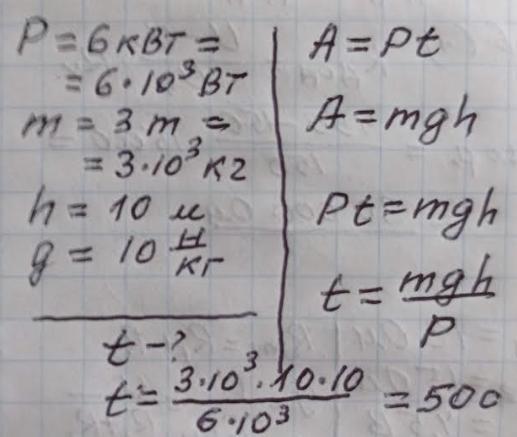 P = 6 кВт =
= 6·10³ Вт
m = 3 т =
= 3·10³ кг
h = 10 м
g = 10 Н/кг
t - ?
A = Pt
A = mgh
Pt = mgh
t = mgh/P
t = 3·10³·10·10/6·10³ = 50c